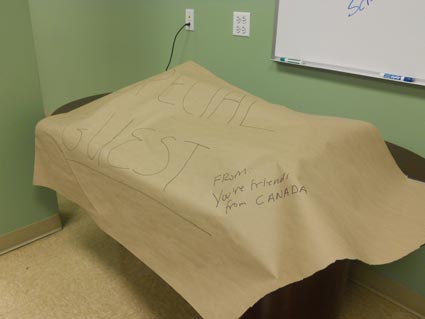 GUEST
FROM:
You're friends
from CANADA